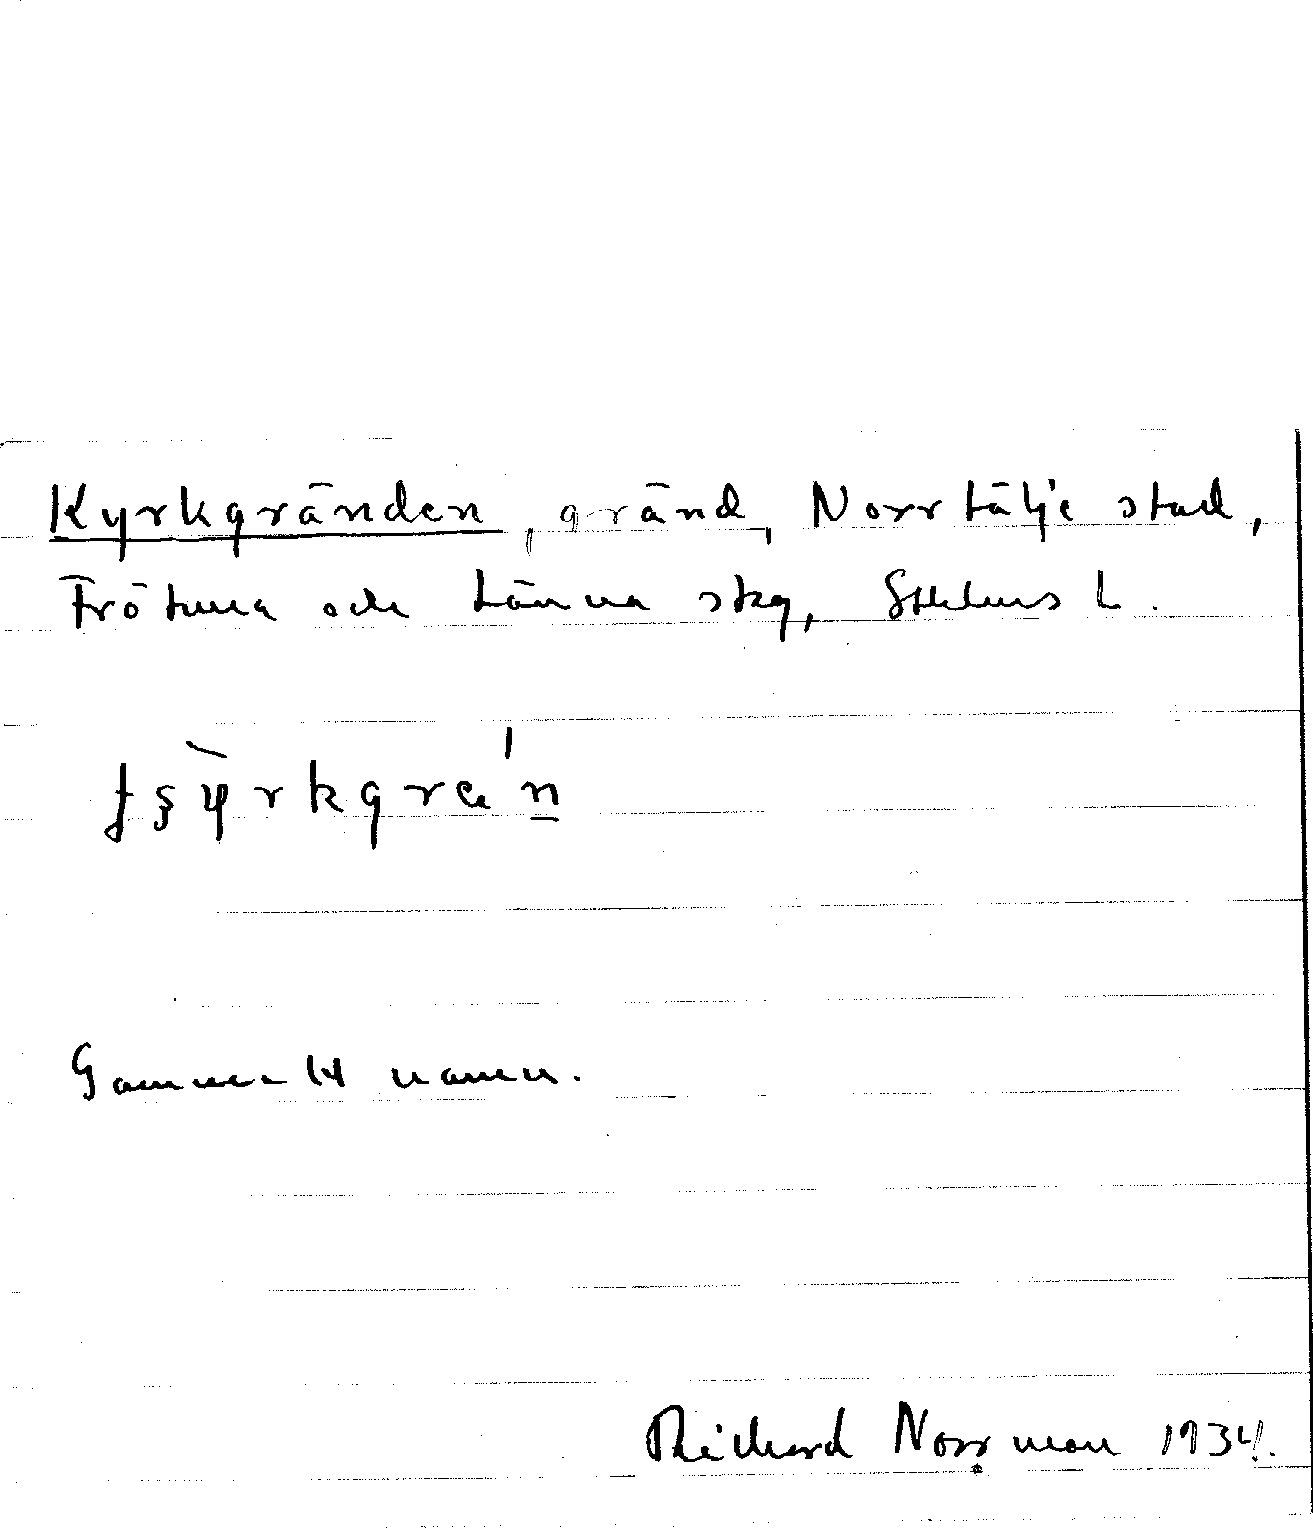 Kyrkgränden, gränd, Norrtälje stad,
Frötuna och Länna skg, Sthlms L.
Gammalt namn.
Richard Norrman 1934.